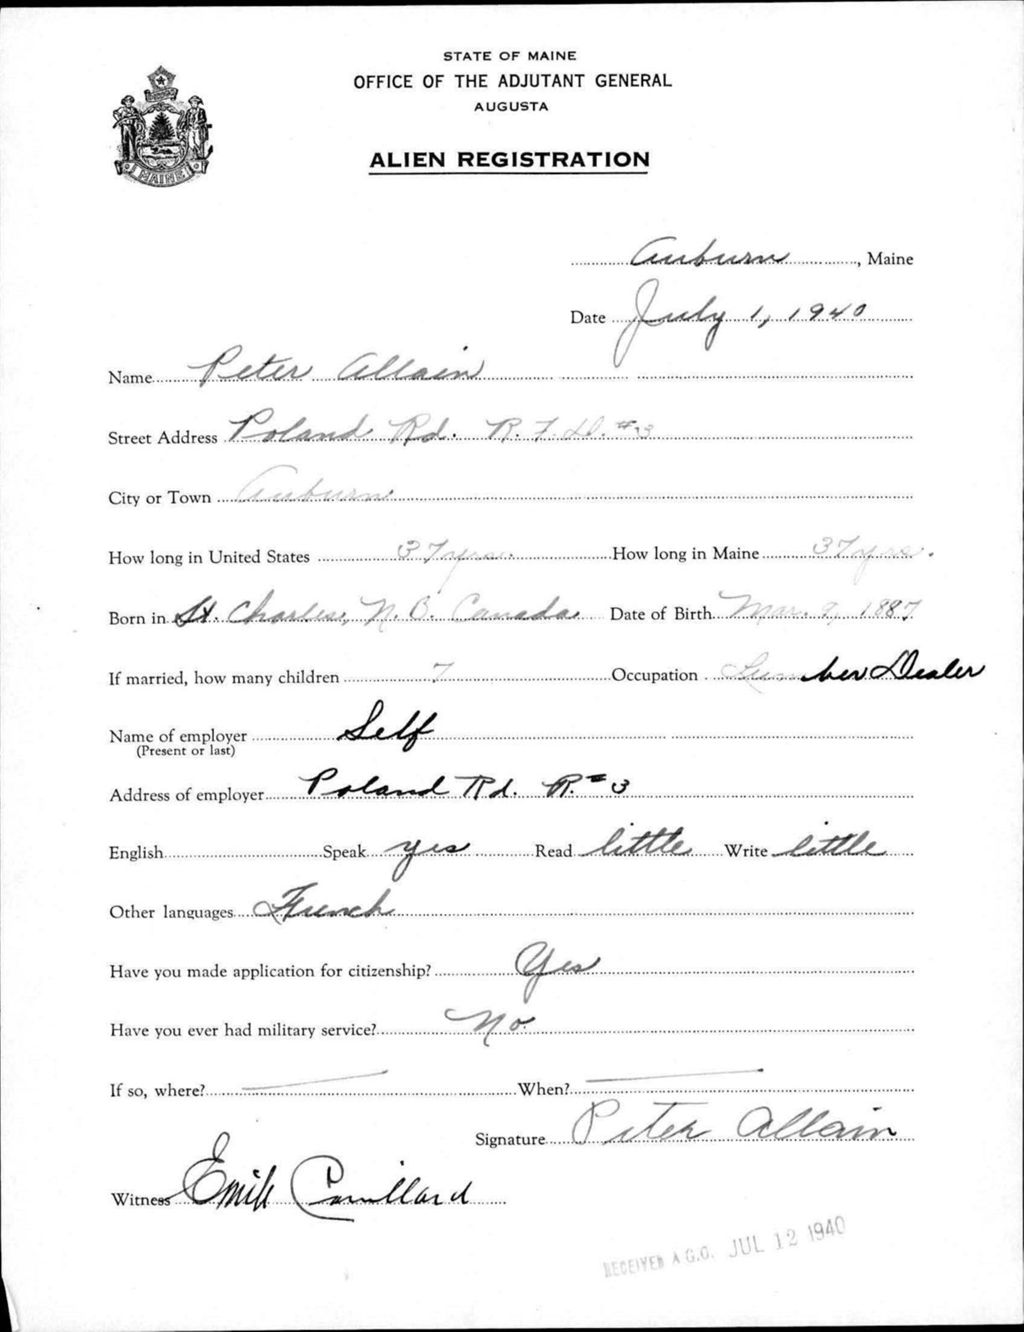 STATE OF MAINE
OFFICE OF THE ADJUTANT GENERAL
AUGUSTA
MAINE
ALIEN REGISTRATION
Auburn, Maine
Date July 1, 1940
Name Peter Allain
Street Address Poland Rd. R.F.D. #3
City or Town Auburn
How long in United States 37 yrs. How long in Maine 37 yrs.
Born in St. Charles, N.B. Canada Date of Birth Mar. 9, 1887
If married, how many children 7 Occupation Lumber Dealer
Name of employer Self
(Present or last)
Address of employer Poland Rd. R. #3
English Speak yes Read little Write little
Other languages French
Have you made application for citizenship? Yes
Have you ever had military service? No.
If so, where? — When? —
Signature Peter Allain
Witness Emile
RECEIVED A.G.O. JUL 12 1940